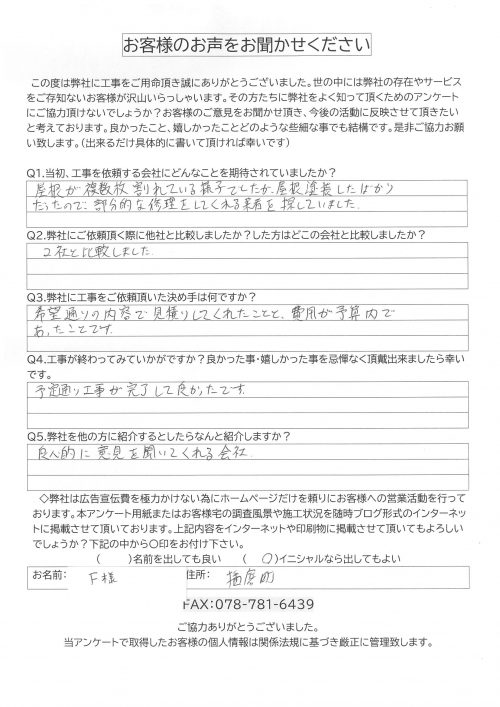 お客様のお声をお聞かせください
この度は弊社に工事をご用命頂き誠にありがとうございました。世の中には弊社の存在やサービス
をご存知ないお客様が沢山いらっしゃいます。その方たちに弊社をよく知って頂くためのアンケート
にご協力頂けないでしょうか?お客様のご意見をお聞かせ頂き、今後の活動に反映させて頂きたい
と考えております。良かったこと、嬉しかったことどのような些細な事でも結構です。是非ご協力お願
い致します。(出来るだけ具体的に書いて頂ければ幸いです)
Q1.当初、工事を依頼する会社にどんなことを期待されていましたか?
屋根が複数枚割れている様子でしたが、屋根塗装したばかり
だったので、部分的な修理をしてくれる業者を探していました。
Q2.弊社にご依頼頂く際に他社と比較しましたか?した方はどこの会社と比較しましたか?
2社と比較しました。
Q3.弊社に工事をご依頼頂いた決め手は何ですか?
希望通りの内容で見積りしてくれたことと、費用が予算内で
あったことです。
Q4.工事が終わってみていかがですか?良かった事・嬉しかった事を忌憚なく頂戴出来ましたら幸い
です。
予定通り工事が完了して良かったです。
Q5.弊社を他の方に紹介するとしたらなんと紹介しますか?
良心的に意見を聞いてくれる会社。
◇弊社は広告宣伝費を極力かけない為にホームページだけを頼りにお客様への営業活動を行って
おります。本アンケート用紙またはお客様宅の調査風景や施工状況を随時ブログ形式のインターネッ
トに掲載させて頂いております。上記内容をインターネットや印刷物に掲載させて頂いてもよろしい
でしょうか?下記の中から〇印をお付け下さい。
( )名前を出しても良い (〇)イニシャルなら出してもよい
お名前: F様 住所: 播磨町
FAX:078-781-6439
ご協力ありがとうございました。
当アンケートで取得したお客様の個人情報は関係法規に基づき厳正に管理致します。